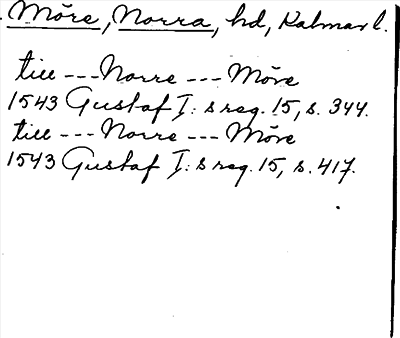 Möre, Norra, hd, Kalmar l.
till --- Norre --- Möre
1543 Gustaf I: s reg. 15, s. 344.
till --- Norre --- Möre
1543 Gustaf I: s reg. 15, s. 417.